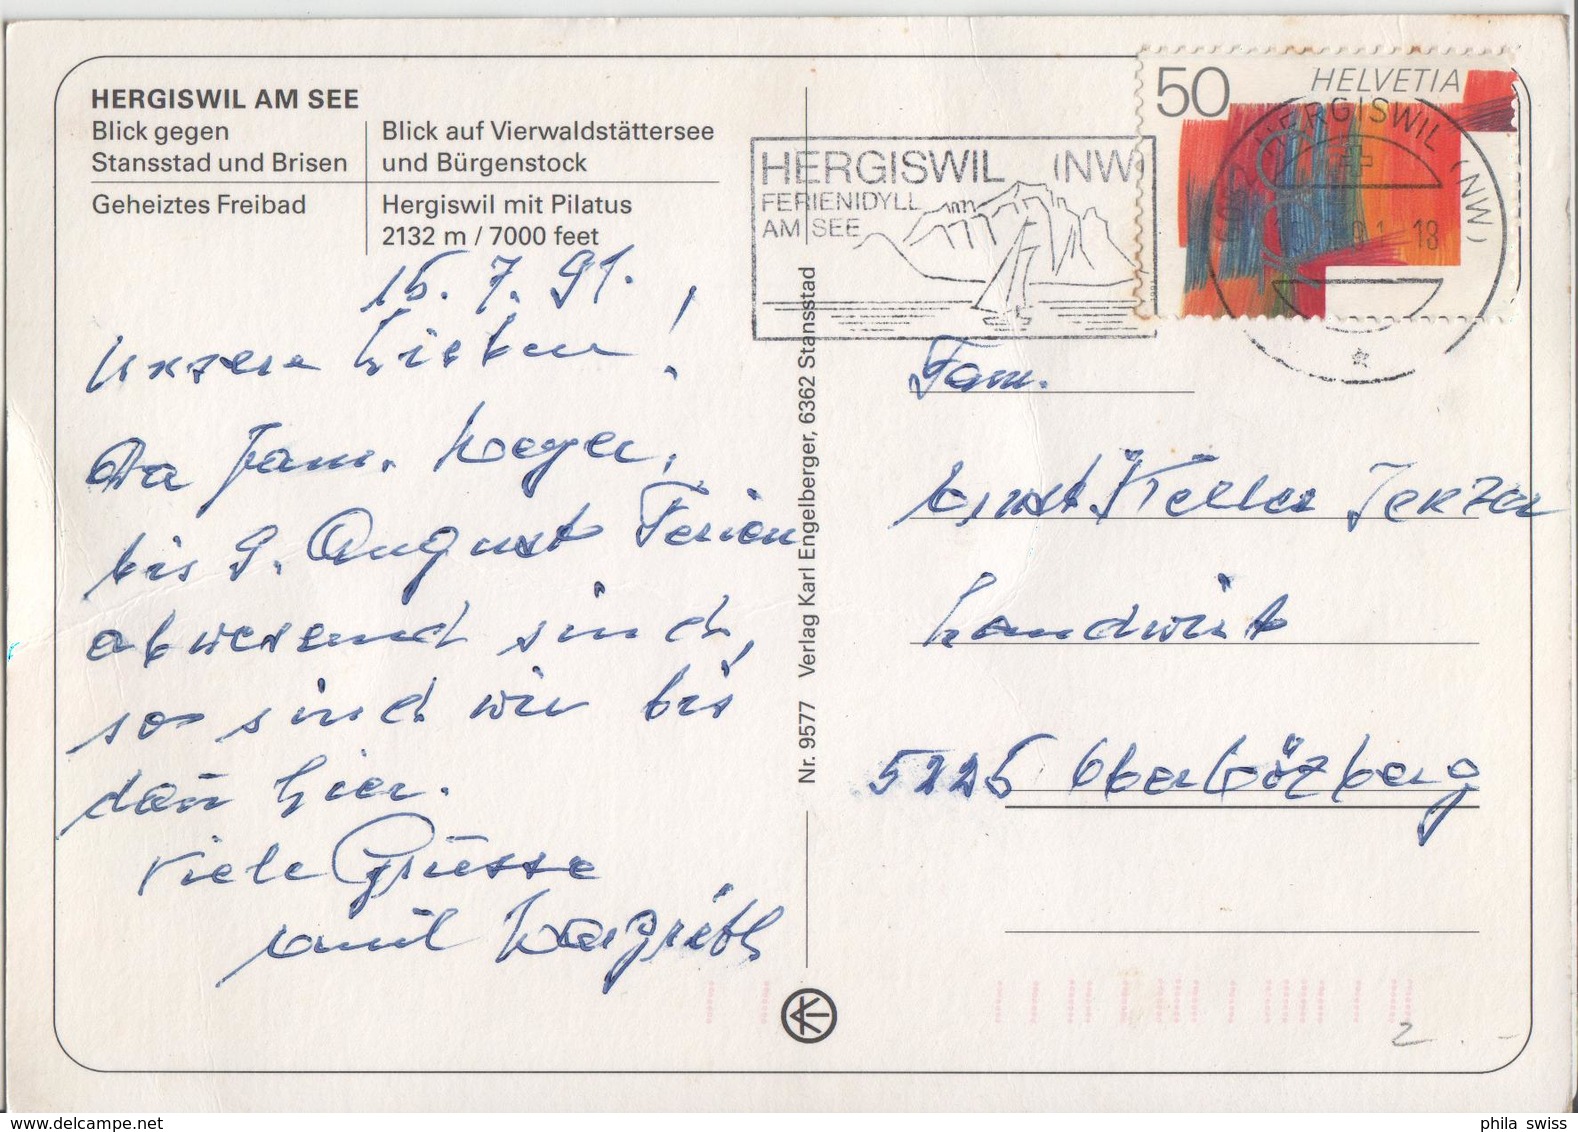 HERGISWIL AM SEE
Blick gegen
Stansstad und Brisen
Blick auf Vierwaldstättersee
und Bürgenstock
Geheiztes Freibad
Hergiswil mit Pilatus
2132 m / 7000 feet
15. 7. 91.
Unsere Lieben!
Da Fam.
bis 9. August Ferien
abwesend sind,
so sind wir bis
dan̄ hier.
Viele Grüsse
Emil Margrith
Nr. 9577 Verlag Karl Engelberger, 6362 Stansstad
HERGISWIL (NW
FERIENIDYLL
AM SEE
50 HELVETIA
HERGISWIL (NW)
Fam.
Ernst Keller
Landwirt
5225 Oberbözberg
2.-
phila swiss